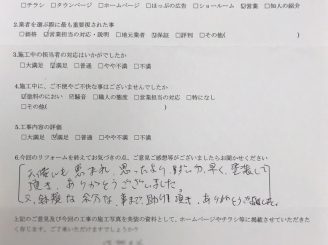 □チラシ □タウンページ □ホームページ □ほっぷの広告 □ショールーム □営業 □知人の紹介
2.業者を選ぶ際に最も重要視された事
□価格 □営業担当の対応・説明 □地元業者 □保証 □評判 □その他( )
3.施工中の担当者の対応はいかがでしたか
□大満足 □満足 □普通 □やや不満 □不満
4.施工中に、ご不便やご不快な事はございませんでしたか
□塗料のにおい □騒音 □職人の態度 □営業担当の対応 □特になし
□その他( )
5.工事内容の評価
□大満足 □満足 □普通 □やや不満 □不満
6.今回のリフォームを終えてお気づきの点、ご意見ご感想等がございましたらお聞かせください
お天気にも恵まれ、思ったより早く、塗装して
頂き、ありがとうございました。
又、余分な事まで助け頂き、ありがとうございました。
上記のご意見及び今回の工事の施工写真を美装の資料として、ホームページやチラシ等に掲載させていただきた
く存じます。ご了承いただけますでしょうか?